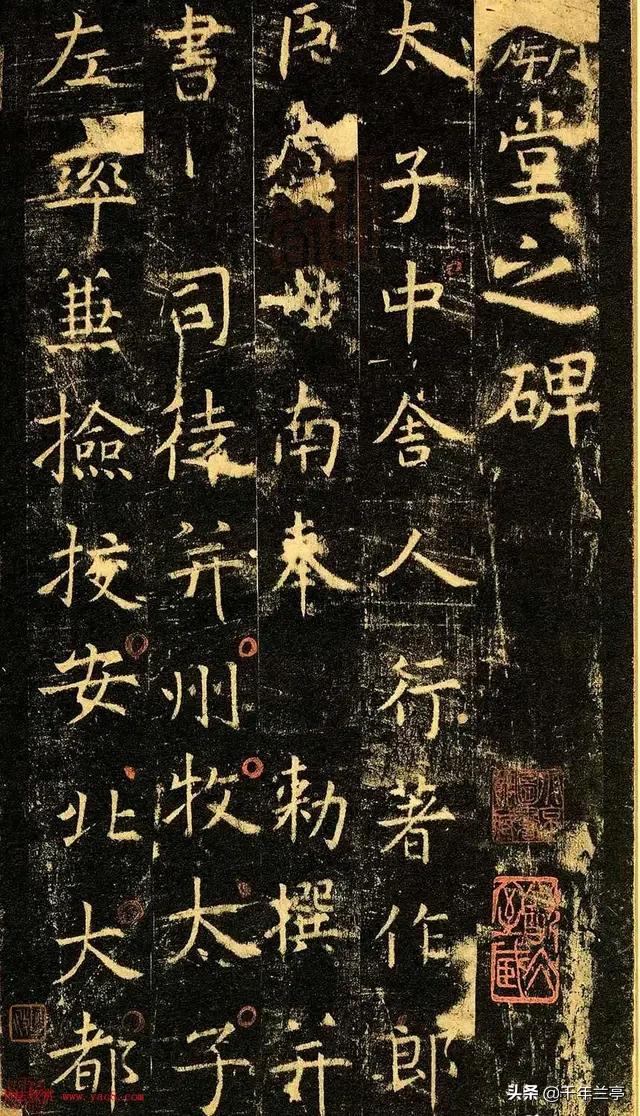 堂之碑
太子中舍人行著作郎
臣虞世南奉 勅撰并
書 司徒并州牧太子
左率兼撿挍安北大都
头条 @千年兰亭